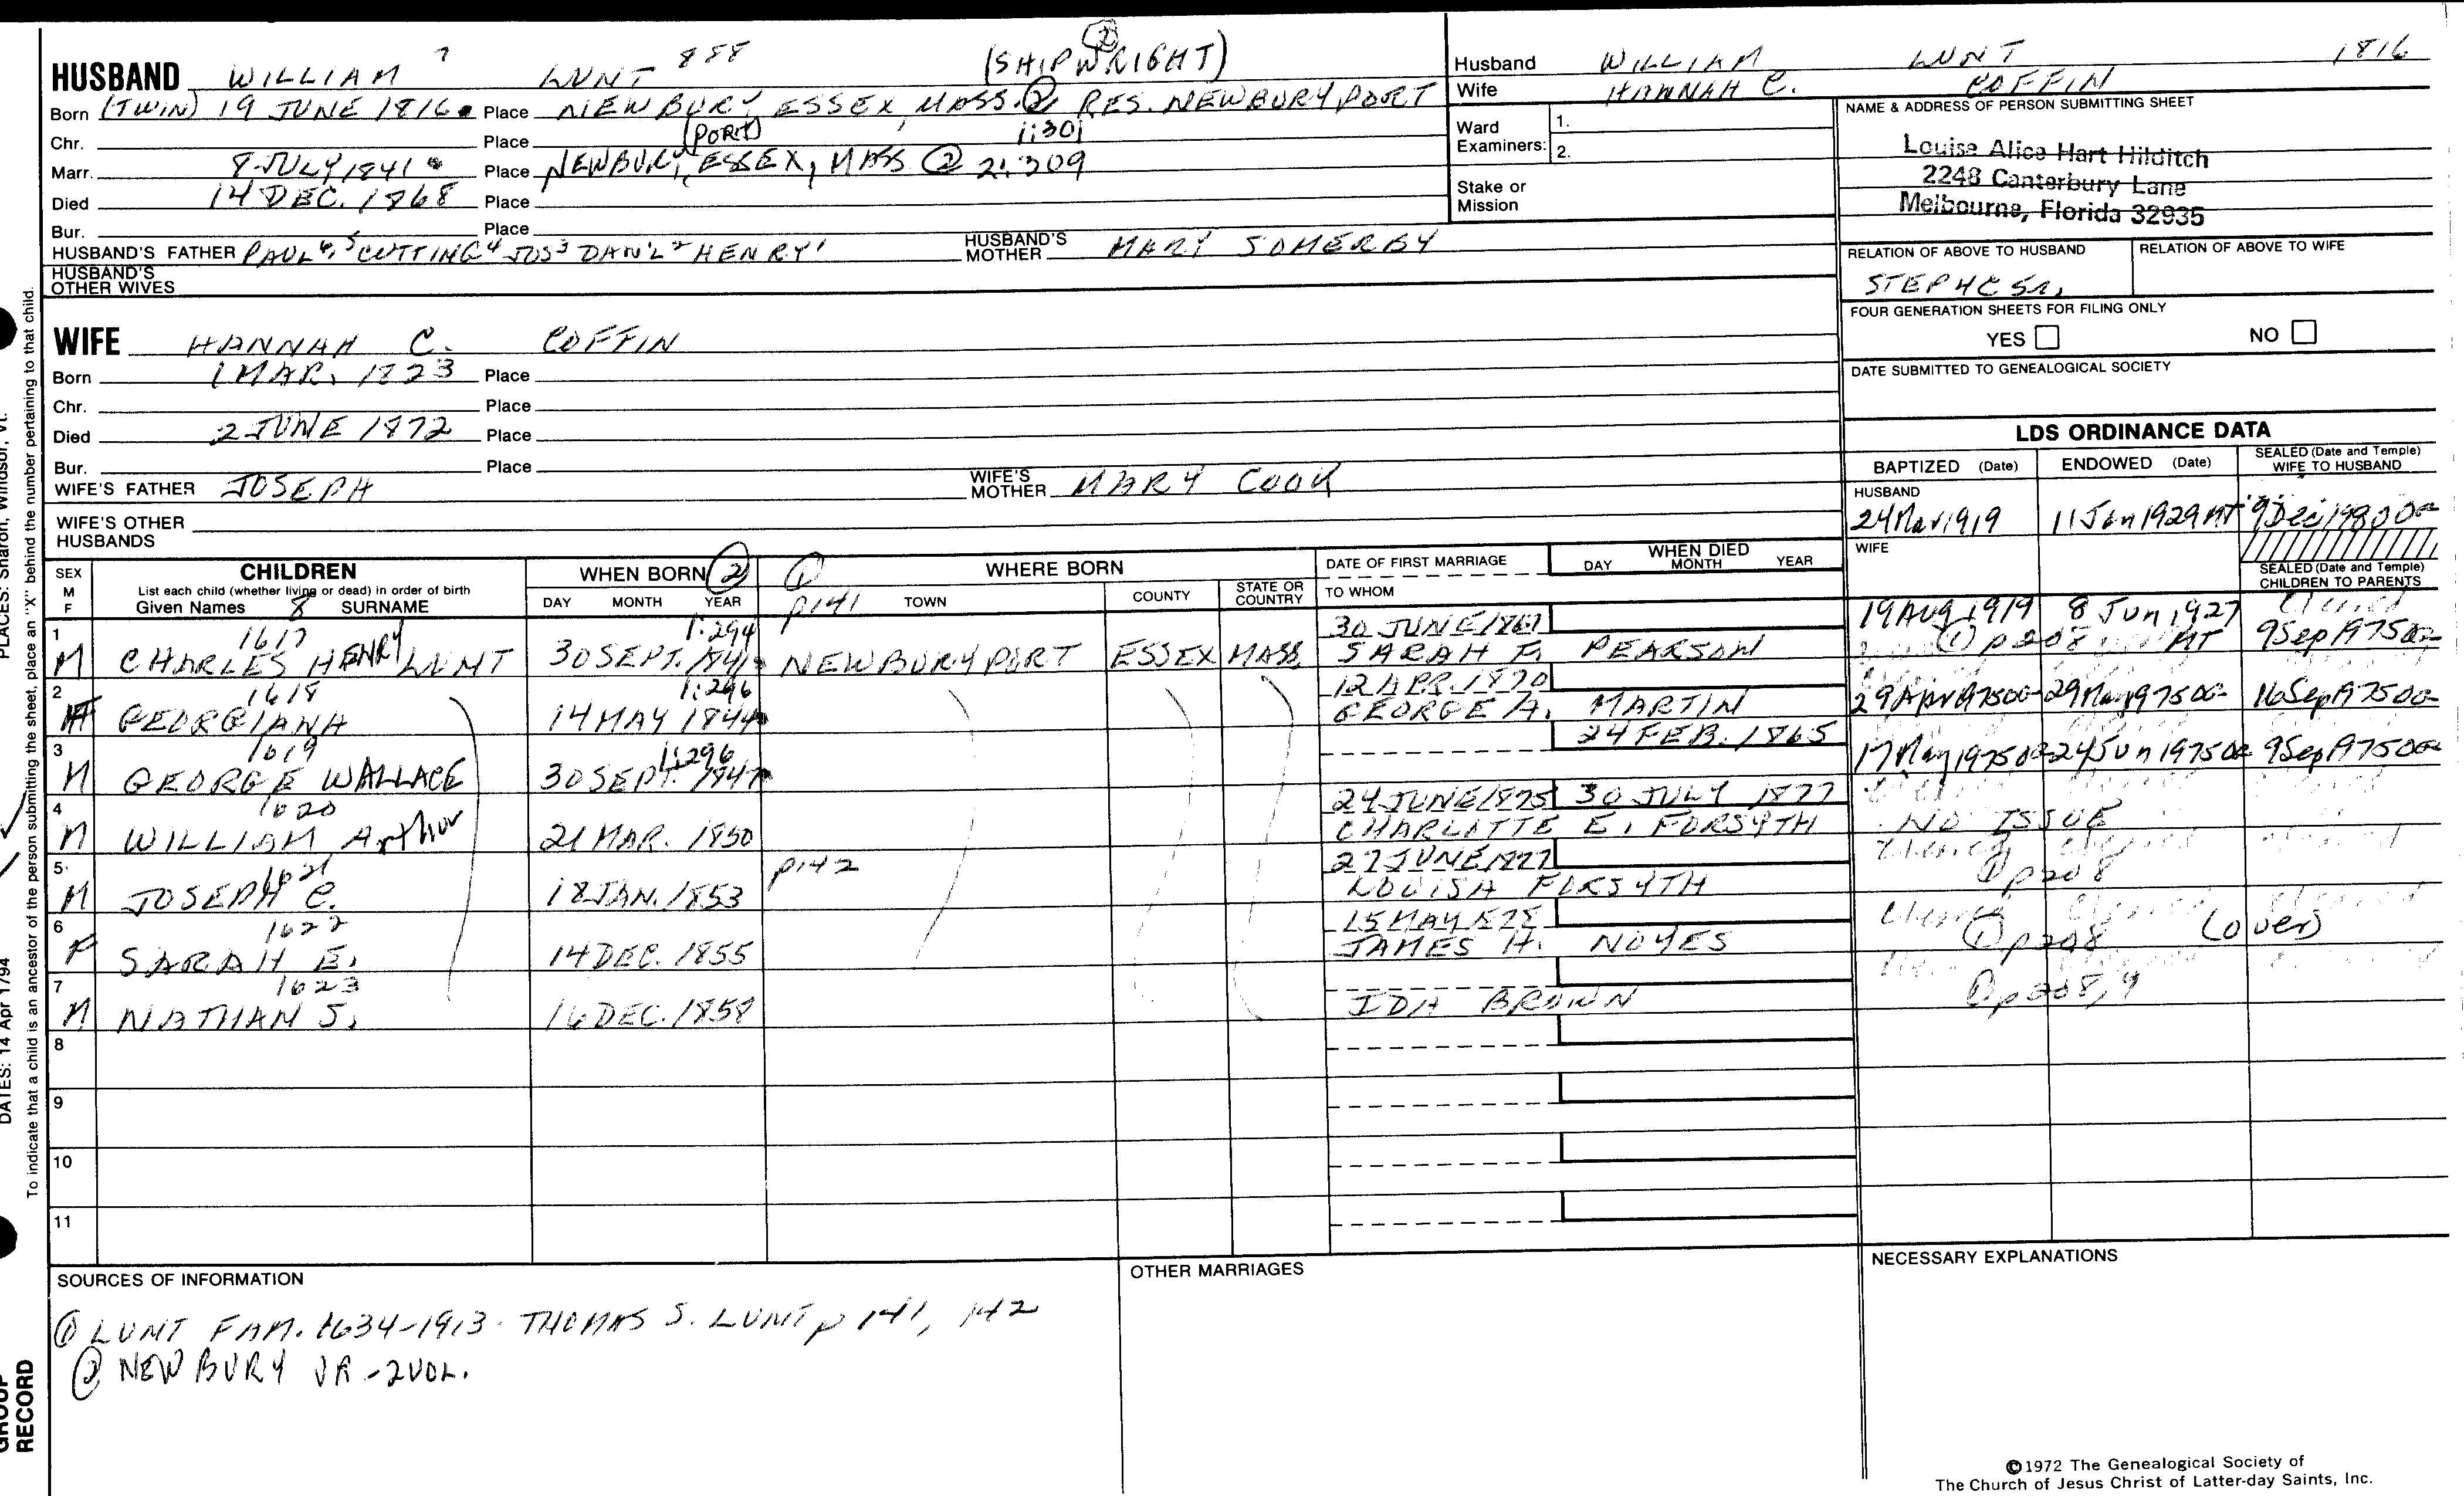 HUSBAND WILLIAM 7 LUNT 888 (SHIPWRIGHT) ②
Born (TWIN) 19 JUNE 1816 Place NEWBURY, ESSEX, MASS. ② RES. NEWBURYPORT
Chr. Place (PORT) 1:301
Marr. 8 JULY 1841 Place NEWBURY, ESSEX, MASS ② 2:309
Died 14 DEC. 1868 Place
Bur. Place
HUSBAND'S FATHER PAUL 6, 5 CUTTING 4 JOS 3 DAN'L 2 HENRY 1 HUSBAND'S MOTHER MARY SOMERBY
HUSBAND'S OTHER WIVES
WIFE HANNAH C. COFFIN
Born 1 MAR. 1823 Place
Chr. Place
Died 2 JUNE 1872 Place
Bur. Place
WIFE'S FATHER JOSEPH WIFE'S MOTHER MARY COOK
WIFE'S OTHER HUSBANDS
Husband WILLIAM LUNT 1816
Wife HANNAH C. COFFIN
Ward Examiners: 1.
2.
Stake or Mission
NAME & ADDRESS OF PERSON SUBMITTING SHEET
Louise Alice Hart Hilditch
2248 Canterbury Lane
Melbourne, Florida 32935
RELATION OF ABOVE TO HUSBAND RELATION OF ABOVE TO WIFE
FOUR GENERATION SHEETS FOR FILING ONLY
YES NO
DATE SUBMITTED TO GENEALOGICAL SOCIETY
LDS ORDINANCE DATA
BAPTIZED (Date) ENDOWED (Date) SEALED (Date and Temple) WIFE TO HUSBAND
HUSBAND
24 Mar 1919 11 Jan 1929 9 Dec 1980
WIFE
SEALED (Date and Temple) CHILDREN TO PARENTS
19 Aug 1919 8 Jun 1927
SEX M F CHILDREN WHEN BORN ② ① WHERE BORN DATE OF FIRST MARRIAGE WHEN DIED
List each child (whether living or dead) in order of birth DAY MONTH YEAR
Given Names 8 SURNAME DAY MONTH YEAR p141 TOWN COUNTY STATE OR COUNTRY TO WHOM
1 1617 1:294 30 JUNE 1867
M CHARLES HENRY LUNT 30 SEPT. 1841 NEWBURYPORT ESSEX MASS. SARAH F. PEARSON ① p208 9 Sep 1975
2 1618 1:296 12 APR. 1870
F GEORGIANA 14 MAY 1844 GEORGE A. MARTIN 29 Apr 1975 29 May 1975 16 Sep 1975
3 1619 1:296 24 FEB. 1865
M GEORGE WALLACE 30 SEPT. 1847 17 May 1975 24 Jun 1975 9 Sep 1975
4 1620 24 JUNE 1875 30 JULY 1877
M WILLIAM Arthur 21 MAR. 1850 CHARLOTTE E. FORSYTH NO ISSUE
5 1621 p142 27 JUNE 1877
M JOSEPH C. 18 JAN. 1853 LOUISA FORSYTH ① p208
6 1622 15 MAY 1878
F SARAH E. 14 DEC. 1855 JAMES H. NOYES ① p208 (over)
7 1623
M NATHAN S. 16 DEC. 1858 IDA BROWN ① p208, 9
8
9
10
11
SOURCES OF INFORMATION
① LUNT FAM. 1634-1913. THOMAS S. LUNT p 141, 142
② NEWBURY VR - 2 VOL.
OTHER MARRIAGES
NECESSARY EXPLANATIONS
©1972 The Genealogical Society of
The Church of Jesus Christ of Latter-day Saints, Inc.
PLACES: Sharon, Windsor, Vt.
To indicate that a child is an ancestor of the person submitting the sheet, place an "X" behind the number pertaining to that child.
DATES: 14 Apr 1794
GROUP
RECORD